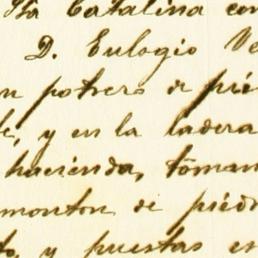 Sta Catalina con
D. Eulogio Ve
n potrero de pie
te, y en la ladera
hacienda, toman
monton de piedr
to, y puestas es